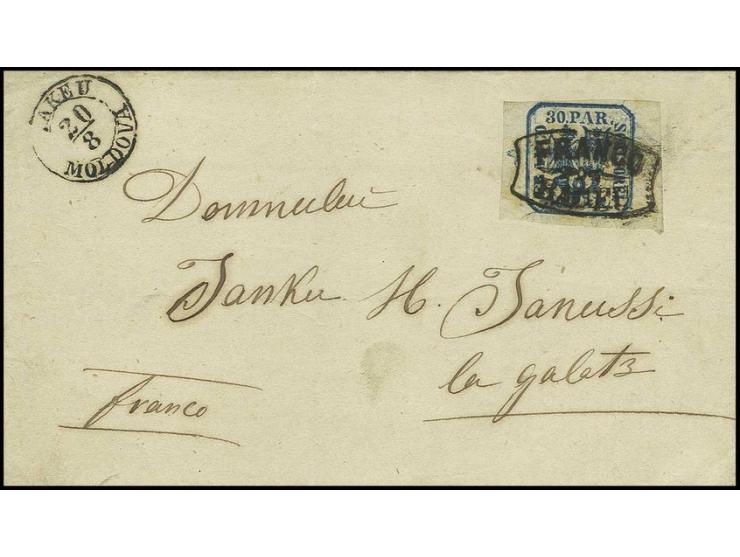 AKEU
20
8
MOLDOVA
30.PAR.
FRANCO
Domnului
Janku H. Janussi
la galatz
franco